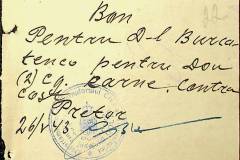 Bon
Pentru D-l Burca-
tenco pentru Dou
(2) Cg. carne. Contra
Cost
Pretor
26/V 43